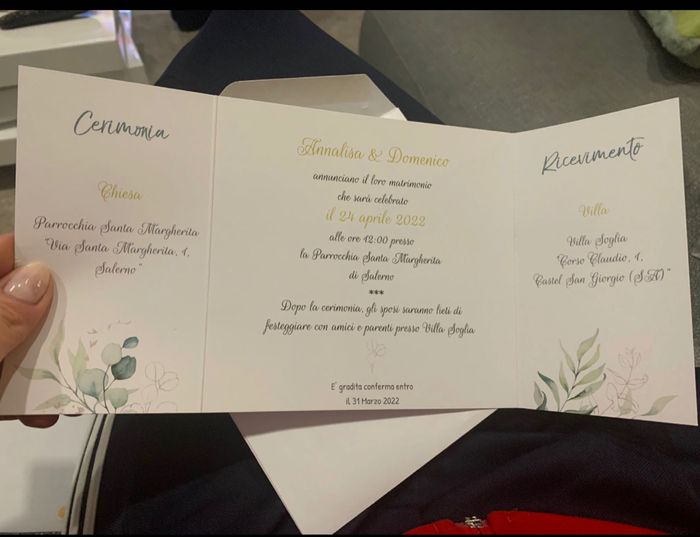 Cerimonia
Chiesa
Parrocchia Santa Margherita
"Via Santa Margherita, 1,
Salerno"
Annalisa & Domenico
annunciano il loro matrimonio
che sarà celebrato
il 24 aprile 2022
alle ore 12:00 presso
la Parrocchia Santa Margherita
di Salerno
***
Dopo la cerimonia, gli sposi saranno lieti di
festeggiare con amici e parenti presso Villa Soglia
E' gradita conferma entro
il 31 Marzo 2022
Ricevimento
Villa
Villa Soglia
"Corso Claudio, 1,
Castel San Giorgio (SA)"